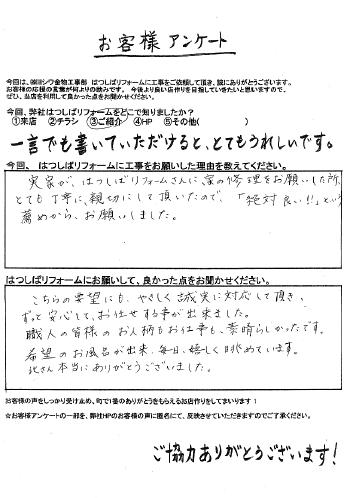 お客様 アンケート
今回は、㈱ヨシワ金物工事部 はつしばリフォームに工事をご依頼して頂き、誠にありがとうございます。
お客様の応援の言葉が何よりの励みです。今後より良い店作りを目指していきたいと思いますので、
ぜひ、当店を利用して良かった点をお聞かせください。
今回、弊社はつしばリフォームをどこで知りましたか?
①来店 ②チラシ ③ご紹介 ④HP ⑤その他( )
一言でも書いていただけると、とてもうれしいです。
今回、はつしばリフォームに工事をお願いした理由を教えてください。
実家が、はつしばリフォームさんに、家の修理をお願いした所、
とても丁寧に、親切にして頂いたので、「絶対良い!!」という
薦めから、お願いしました。
はつしばリフォームにお願いして、良かった点をお聞かせください。
こちらの要望にも、やさしく誠実に対応して頂き、
ずっと安心して、お任せする事が出来ました。
職人の皆様のお人柄もお仕事も、素晴らしかったです。
希望のお風呂が出来、毎日、嬉しく眺めています。
北さん本当にありがとうございました。
お客様の声をしっかり受け止め、町で1番のありがとうをもらえるお店作りをしてまいります!
☆お客様アンケートの一部を、弊社HPのお客様の声に匿名にて、反映させていただきますのでご了承ください。
ご協力ありがとうございます!